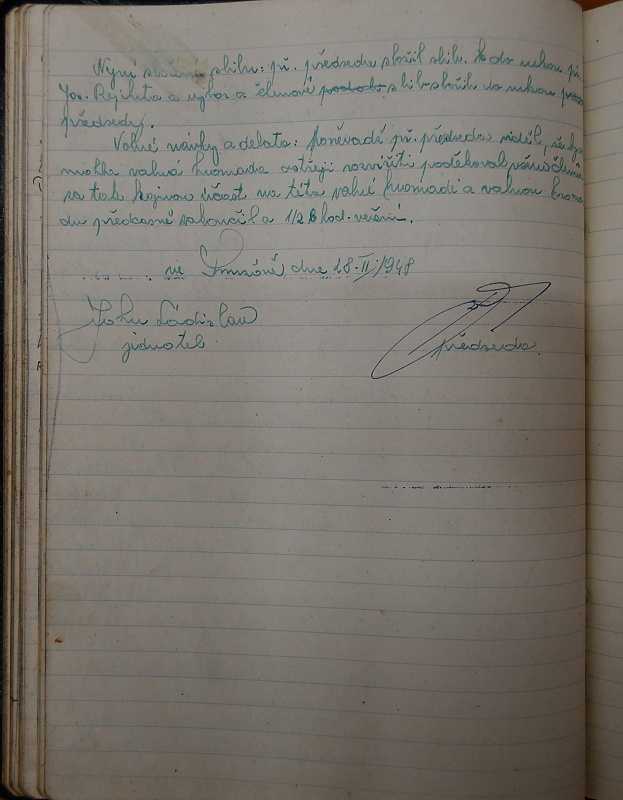 Nyní složení slibu: př. předseda složil slib. k do rukou př.
Jos. Rejhuta a výbor a členové slib složili do rukou
předsedy.
Volné návrhy a debata: Poněvadž př. předseda viděl, že by
mohla valná hromada ostřeji rozvířiti poděkoval všem členům
za tak hojnou účast na této valné hromadě a valnou hroma
du předčasně zakončil a 1/2 8 hod. večerní.
ve dne 28.II./1948
John Ladislav
jednatel předseda